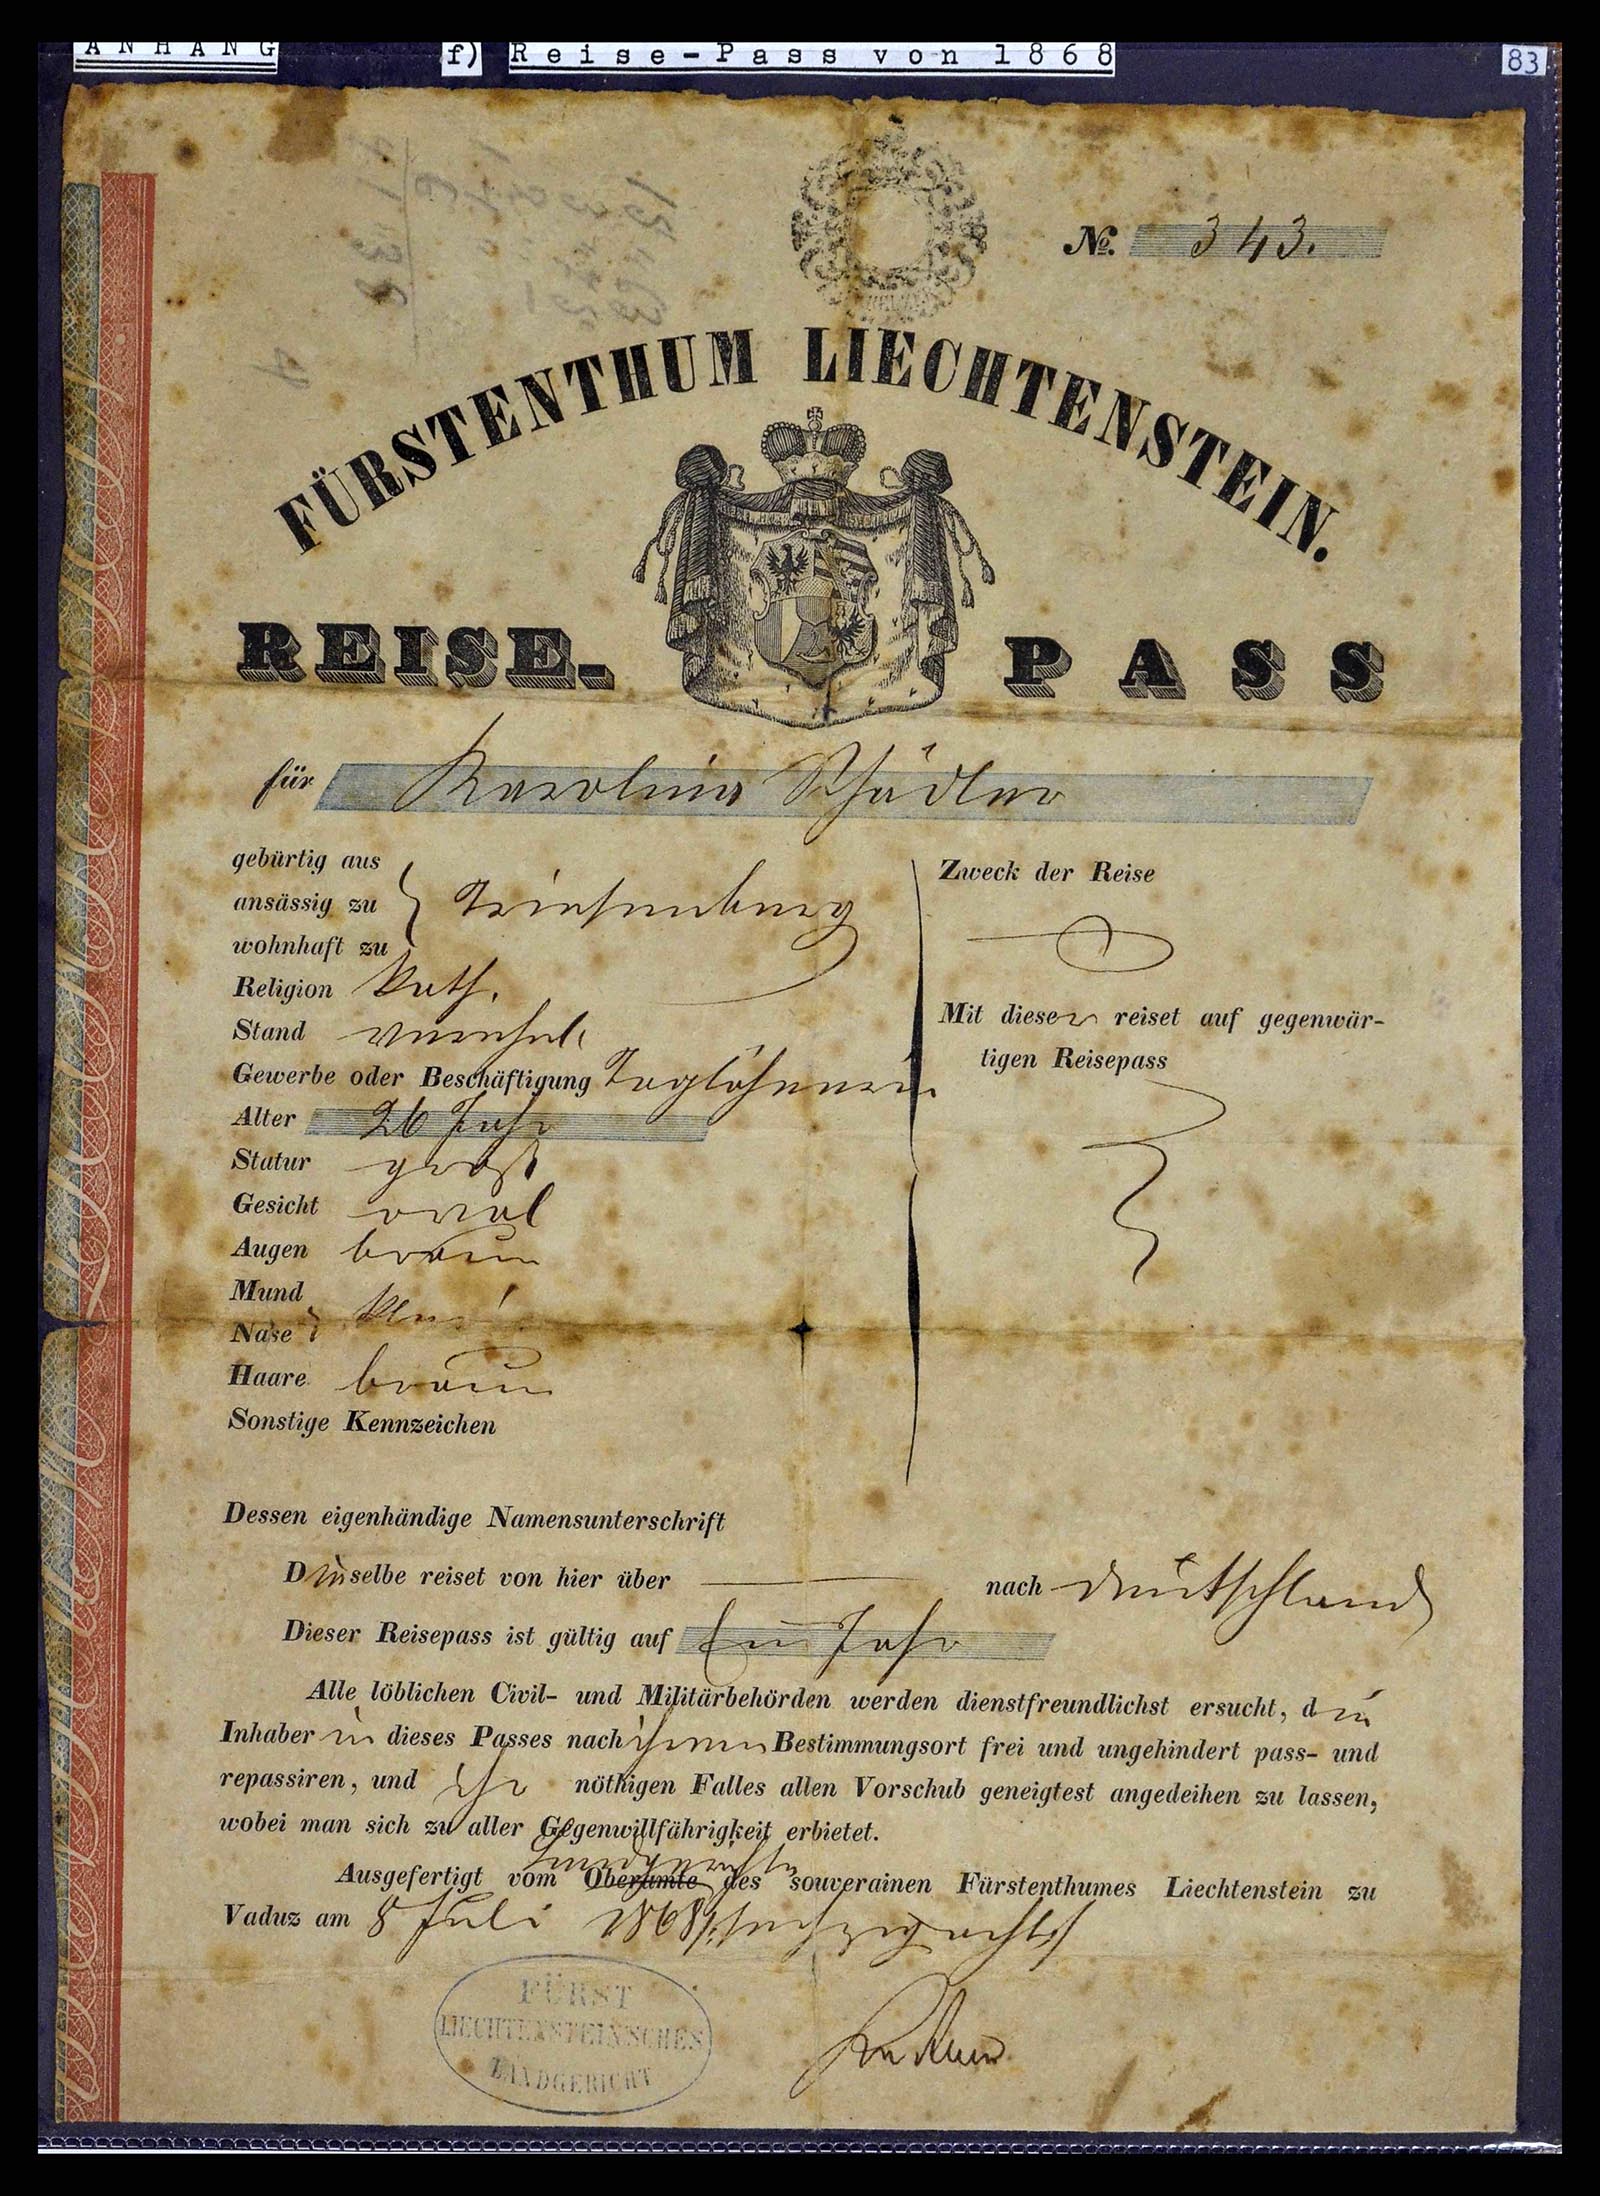 ANHANG f) Reise-Pass von 1868 83
№. 343.
FÜRSTENTHUM LIECHTENSTEIN.
REISE- PASS
für Karolina Schädler
gebürtig aus
ansässig zu } Triesenberg
wohnhaft zu
Religion kath.
Stand
Gewerbe oder Beschäftigung Taglöhnerin
Alter 26 Jahr
Statur groß
Gesicht oval
Augen braun
Mund
Nase } klein
Haare braun
Sonstige Kennzeichen
Zweck der Reise
Mit dieser reiset auf gegenwär-
tigen Reisepass
Dessen eigenhändige Namensunterschrift
Dieselbe reiset von hier über — nach Deutschland
Dieser Reisepass ist gültig auf Ein Jahr
Alle löblichen Civil- und Militärbehörden werden dienstfreundlichst ersucht, die
Inhaberin dieses Passes nach ihrem Bestimmungsort frei und ungehindert pass- und
repassiren, und ihr nöthigen Falles allen Vorschub geneigtest angedeihen zu lassen,
wobei man sich zu aller Gegenwillfährigkeit erbietet.
Landgerichte
Ausgefertigt vom Oberamte des souverainen Fürstenthumes Liechtenstein zu
Vaduz am 8 Juli 1868
FÜRST
LIECHTENSTEIN'SCHES
LANDGERICHT